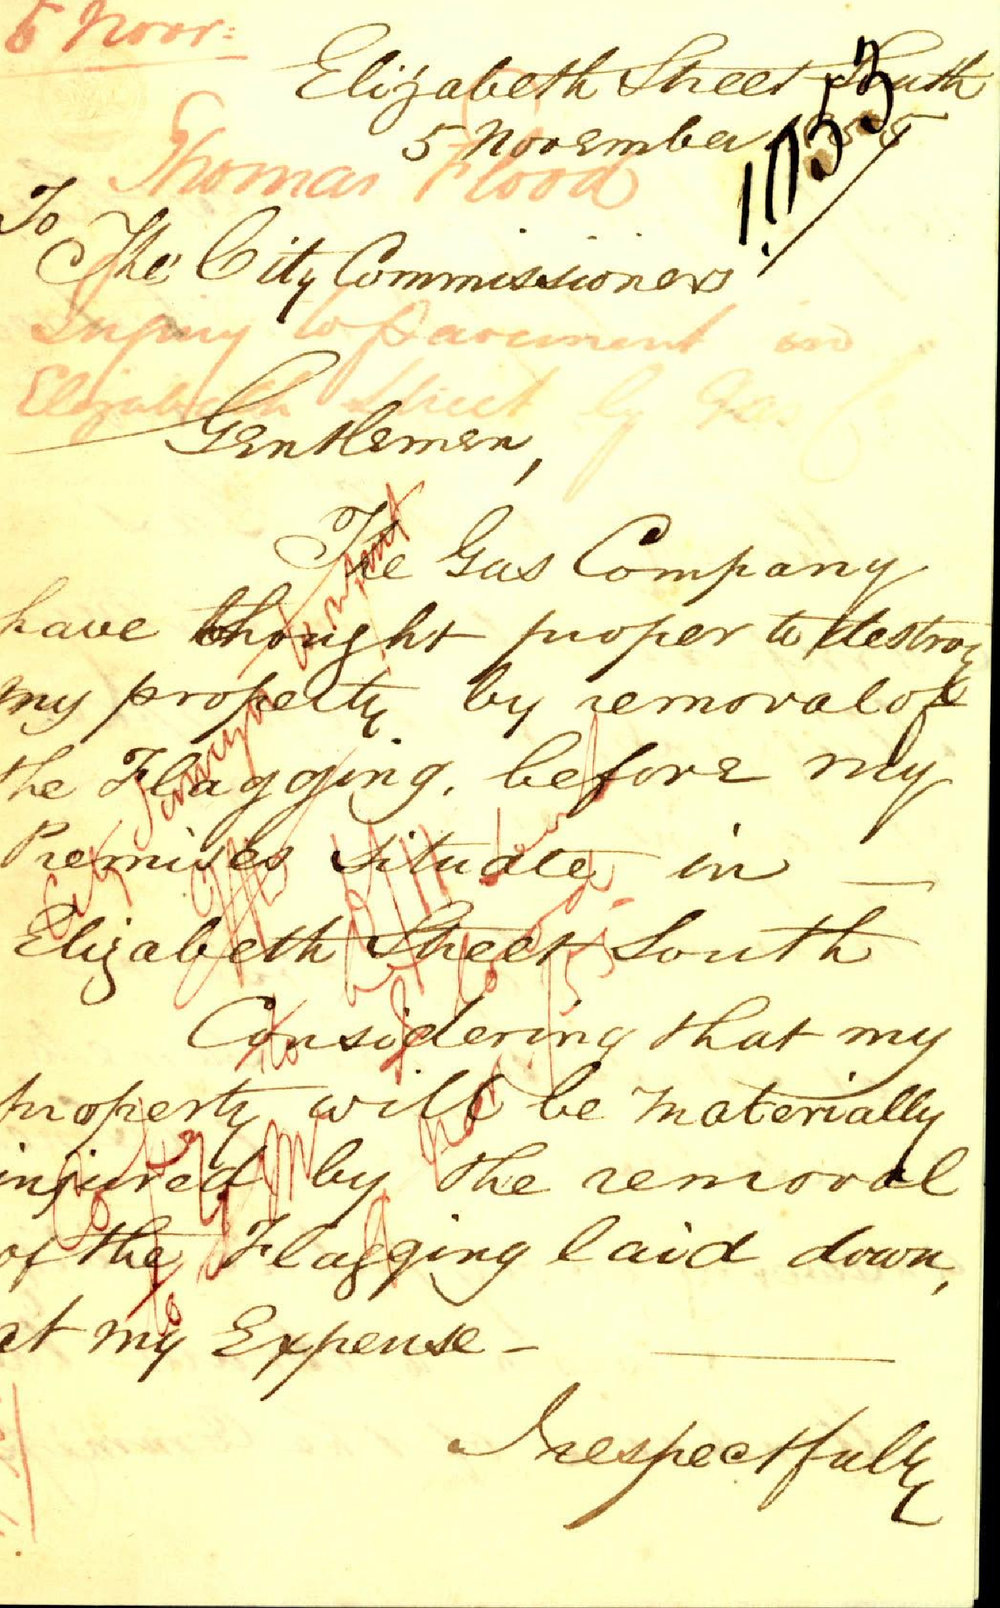 5 Novr:
Elizabeth Street South
5 November 1855
1053
Thomas Flood
To
The City Commissioners
Injury to Pavement in
Elizabeth Street by Gas Co
Gentlemen,
The Gas Company
have thought proper to destroy
my property by removal of
the Flagging. before my
Premises situate in
Elizabeth Street South
Considering that my
property will be materially
injured by the removal
of the Flagging laid down,
at my Expense -
I respectfully
City Surveyor